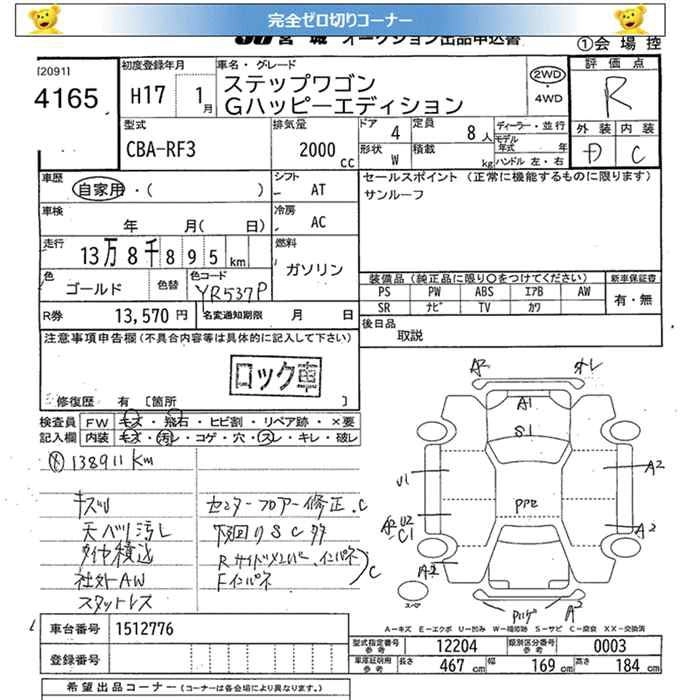 完全ゼロ切りコーナー
宮城 オークション出品申込書
①会場控
[2091]
4165
初度登録年月
H17 1月
車名・グレード
ステップワゴン
Gハッピーエディション
2WD
・
4WD
評価点
R
外装 内装
D C
型式
CBA-RF3
排気量
2000 cc
ドア 4
定員 8人
形状 W
積載 kg
ディーラー・並行
モデル年式 年
ハンドル 左・右
車歴
自家用・( )
シフト
AT
セールスポイント (正常に機能するものに限ります)
サンルーフ
車検
年 月( 日)
冷房
AC
走行
13万8千895km
燃料
ガソリン
色
ゴールド
色替
色コード
YR537P
R券 13,570円
名変通知期限 月 日
装備品(純正品に限り○をつけてください)
新車保証書
PS PW ABS エアB AW
SR ナビ TV カワ
有・無
後日品
取説
注意事項申告欄(不具合内容等は具体的に記入して下さい)
ロック車
修復歴 有 [箇所 ]
検査員記入欄
FW キズ・飛石・ヒビ割・リペア跡・×要
内装 キズ・汚レ・コゲ・穴・スレ・キレ・破レ
138911km
キズU
天バリ汚レ
タイヤ積込
社外AW
スタットレス
センターフロアー修正.C
下回りSC多
Rサイドメンバー、インパネ
Fインパネ
C
A2
A1
S1
U1
A2
A2 U2
C1
A2
A2
A2
スペア
A－キズ E－エクボ U－凹み W－補修跡 S－サビ C－腐食 XX－交換済
車台番号 1512776
登録番号
型式指定番号 参考 12204
類別区分番号 参考 0003
車庫証明用 参考
長さ 467cm
幅 169cm
高さ 184cm
希望出品コーナー(コーナーは各会場により異なります。)